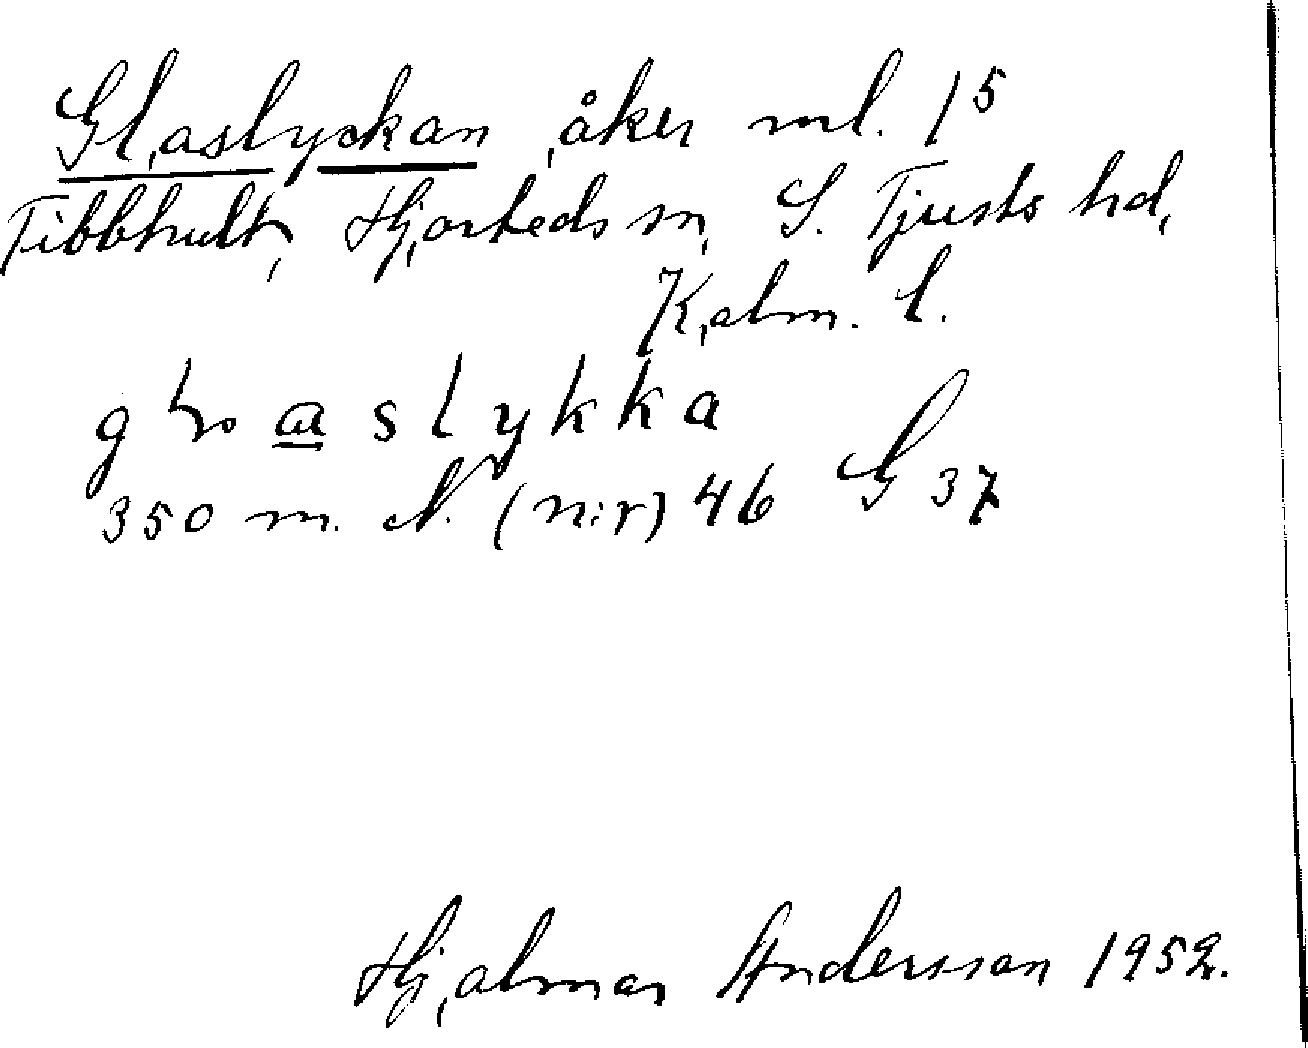 Glaslyckan åker ml. 15
Tibbhult, Hjorteds sn, S. Tjusts hd,
Kalm. l.
aslykka
350 m. N. (n:r) 46 G 37
Hjalmar Andersson 1952.